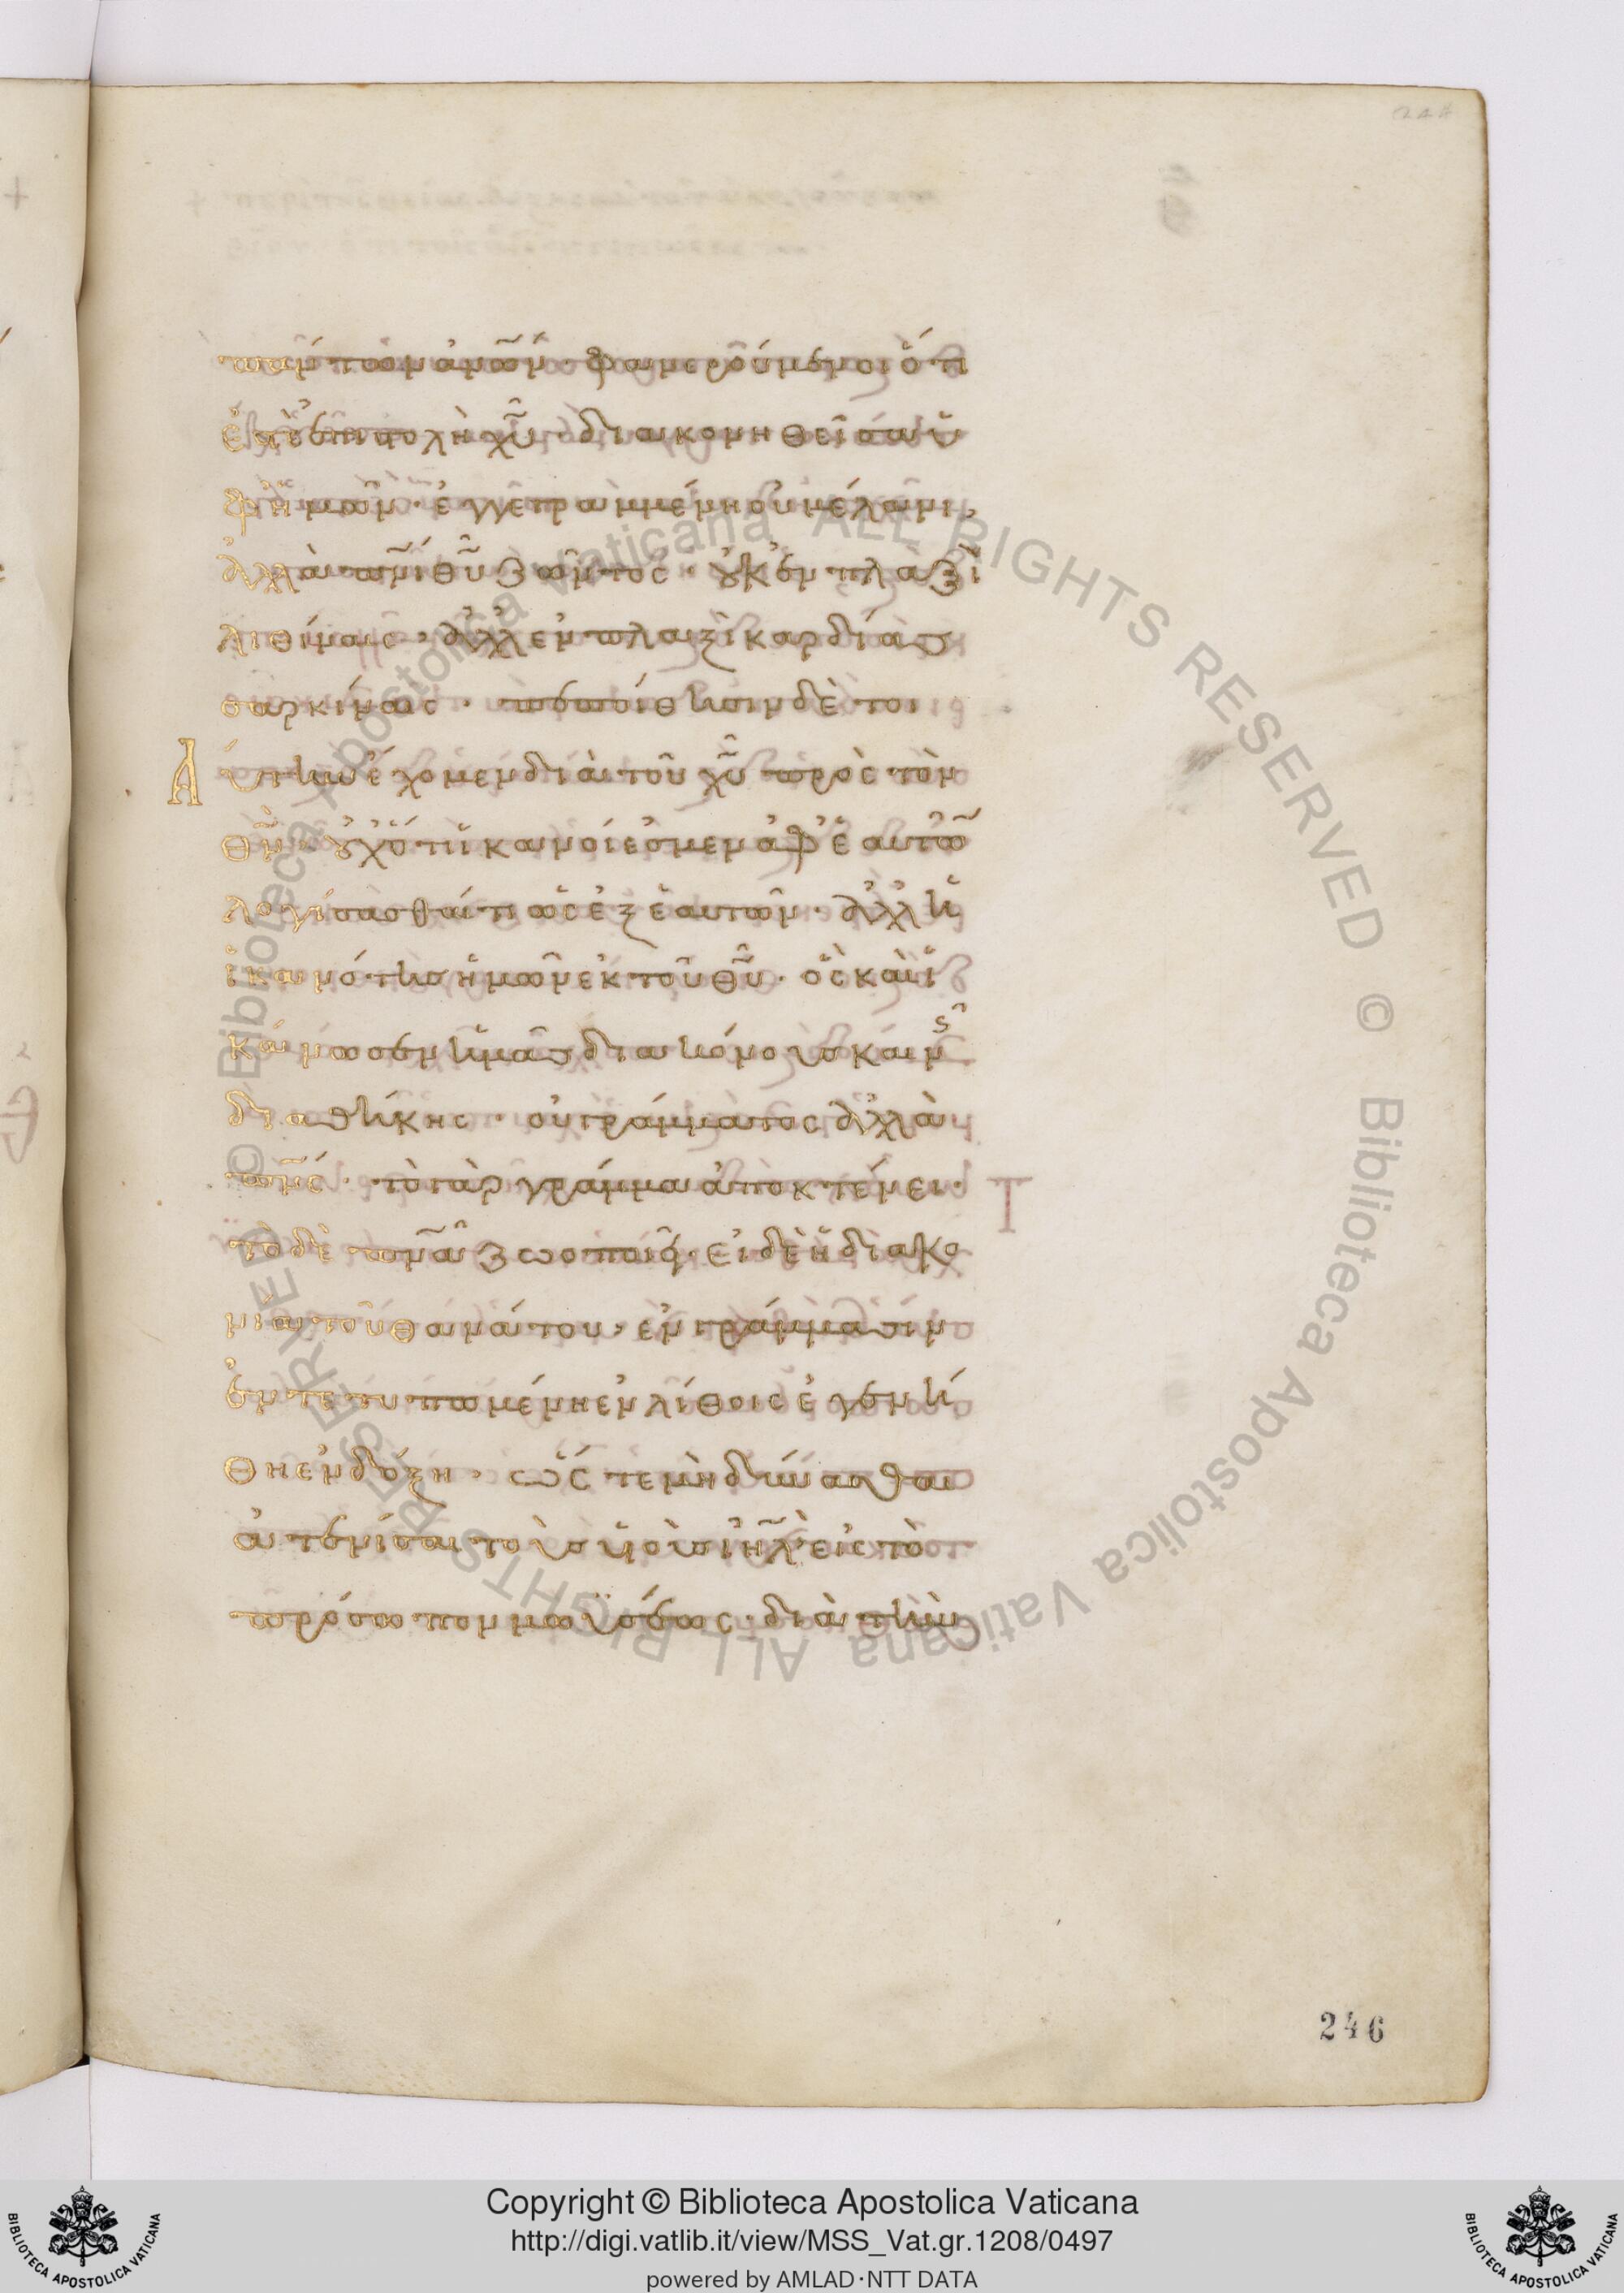 πάντων ἀνῶν· φανερούμενοι ὅτι
ἐστὲ ἐπιστολὴ χῦ· διακονηθεῖσα ὑ
φ' ἡμῶν· ἐγγεγραμμένη οὐ μέλανι,
ἀλλὰ πνι θῦ ζῶντος· οὐκ ἐν πλαξὶ
λιθίναις· ἀλλ' ἐν πλαξὶ καρδίας
σαρκίναις· πεποίθησιν δὲ τοι
Αύτην ἔχομεν διὰ τοῦ χῦ πρὸς τὸν
θν· οὐχ ὅτι ἱκανοί ἐσμεν ἀφ' ἑαυτῶ
λογίσασθαί τι ὡς ἐξ ἑαυτῶν· ἀλλ' ἡ
ἱκανότης ἡμῶν ἐκ τοῦ θῦ· ὃς καὶ ἱ
κάνωσεν ἡμᾶς διακόνους καιν
διαθήκης· οὐ γράμματος ἀλλὰ
πνς· τὸ γὰρ γράμμα ἀποκτένει·
τὸ δὲ πνα ζωοποιεῖ· εἰ δὲ ἡ διακο
νία τοῦ θανάτου· ἐν γράμμασιν
ἐντετυπωμένη ἐν λίθοις ἐγενή
θη ἐν δόξη· ὥστε μὴ δύνασθαι
ἀτενίσαι τοὺς υἱοὺς ιηλ εἰς τὸ
πρόσωπον μωϋσέως· διὰ τὴν
246
© Biblioteca Apostolica Vaticana ALL RIGHTS RESERVED © Biblioteca Apostolica Vaticana ALL RIGHTS RESERVED
Copyright © Biblioteca Apostolica Vaticana
http://digi.vatlib.it/view/MSS_Vat.gr.1208/0497
powered by AMLAD·NTT DATA
BIBLIOTECA APOSTOLICA VATICANA
BIBLIOTECA APOSTOLICA VATICANA